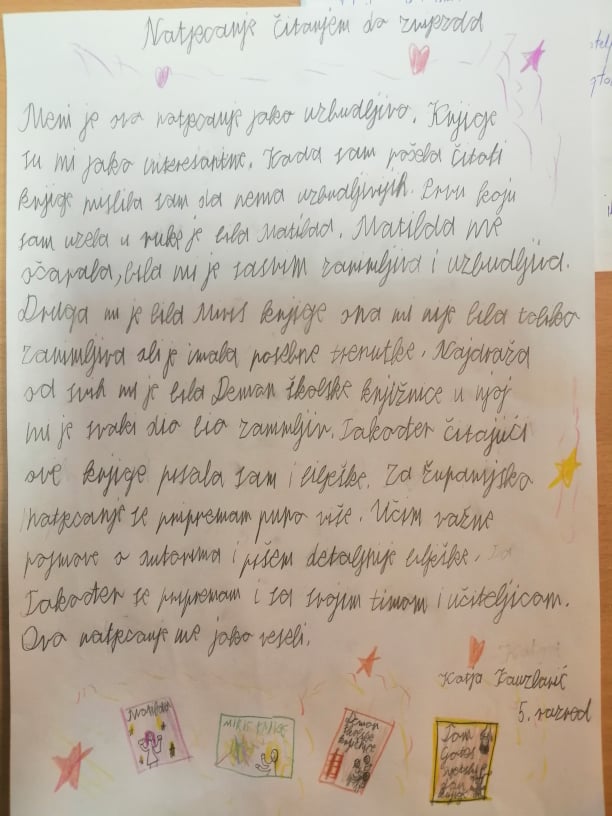 Natjecanje čitanjem do zvijezda
Meni je ova natjecanje jako uzbudljivo. Knjige
su mi jako interesantne. Kada sam počela čitati
knjige mislila sam da nema uzbudljivijih. Prvu koju
sam uzela u ruke je bila Matilad. Matilda me
očarala, bila mi je sasvim zanimljiva i uzbudljiva.
Druga mi je bila Miris knjige ona mi nije bila toliko
zanimljiva ali je imala posebne trenutke. Najdraža
od svih mi je bila Demon školske knjižnice u njoj
mi je svaki dio bio zanimljiv. Također čitajući
ove knjige pisala sam i bilješke. Za županijsko
natjecanje se pripremam puno više. Učim važne
pojmove o autorima i pišem detaljnije bilješke.
Također se pripremam i sa svojim timom i učiteljicom.
Ovo natjecanje me jako veseli.
Katja
5. razred
Matilda
MIRIS KNJIGE
Demon
školske
knjižnice